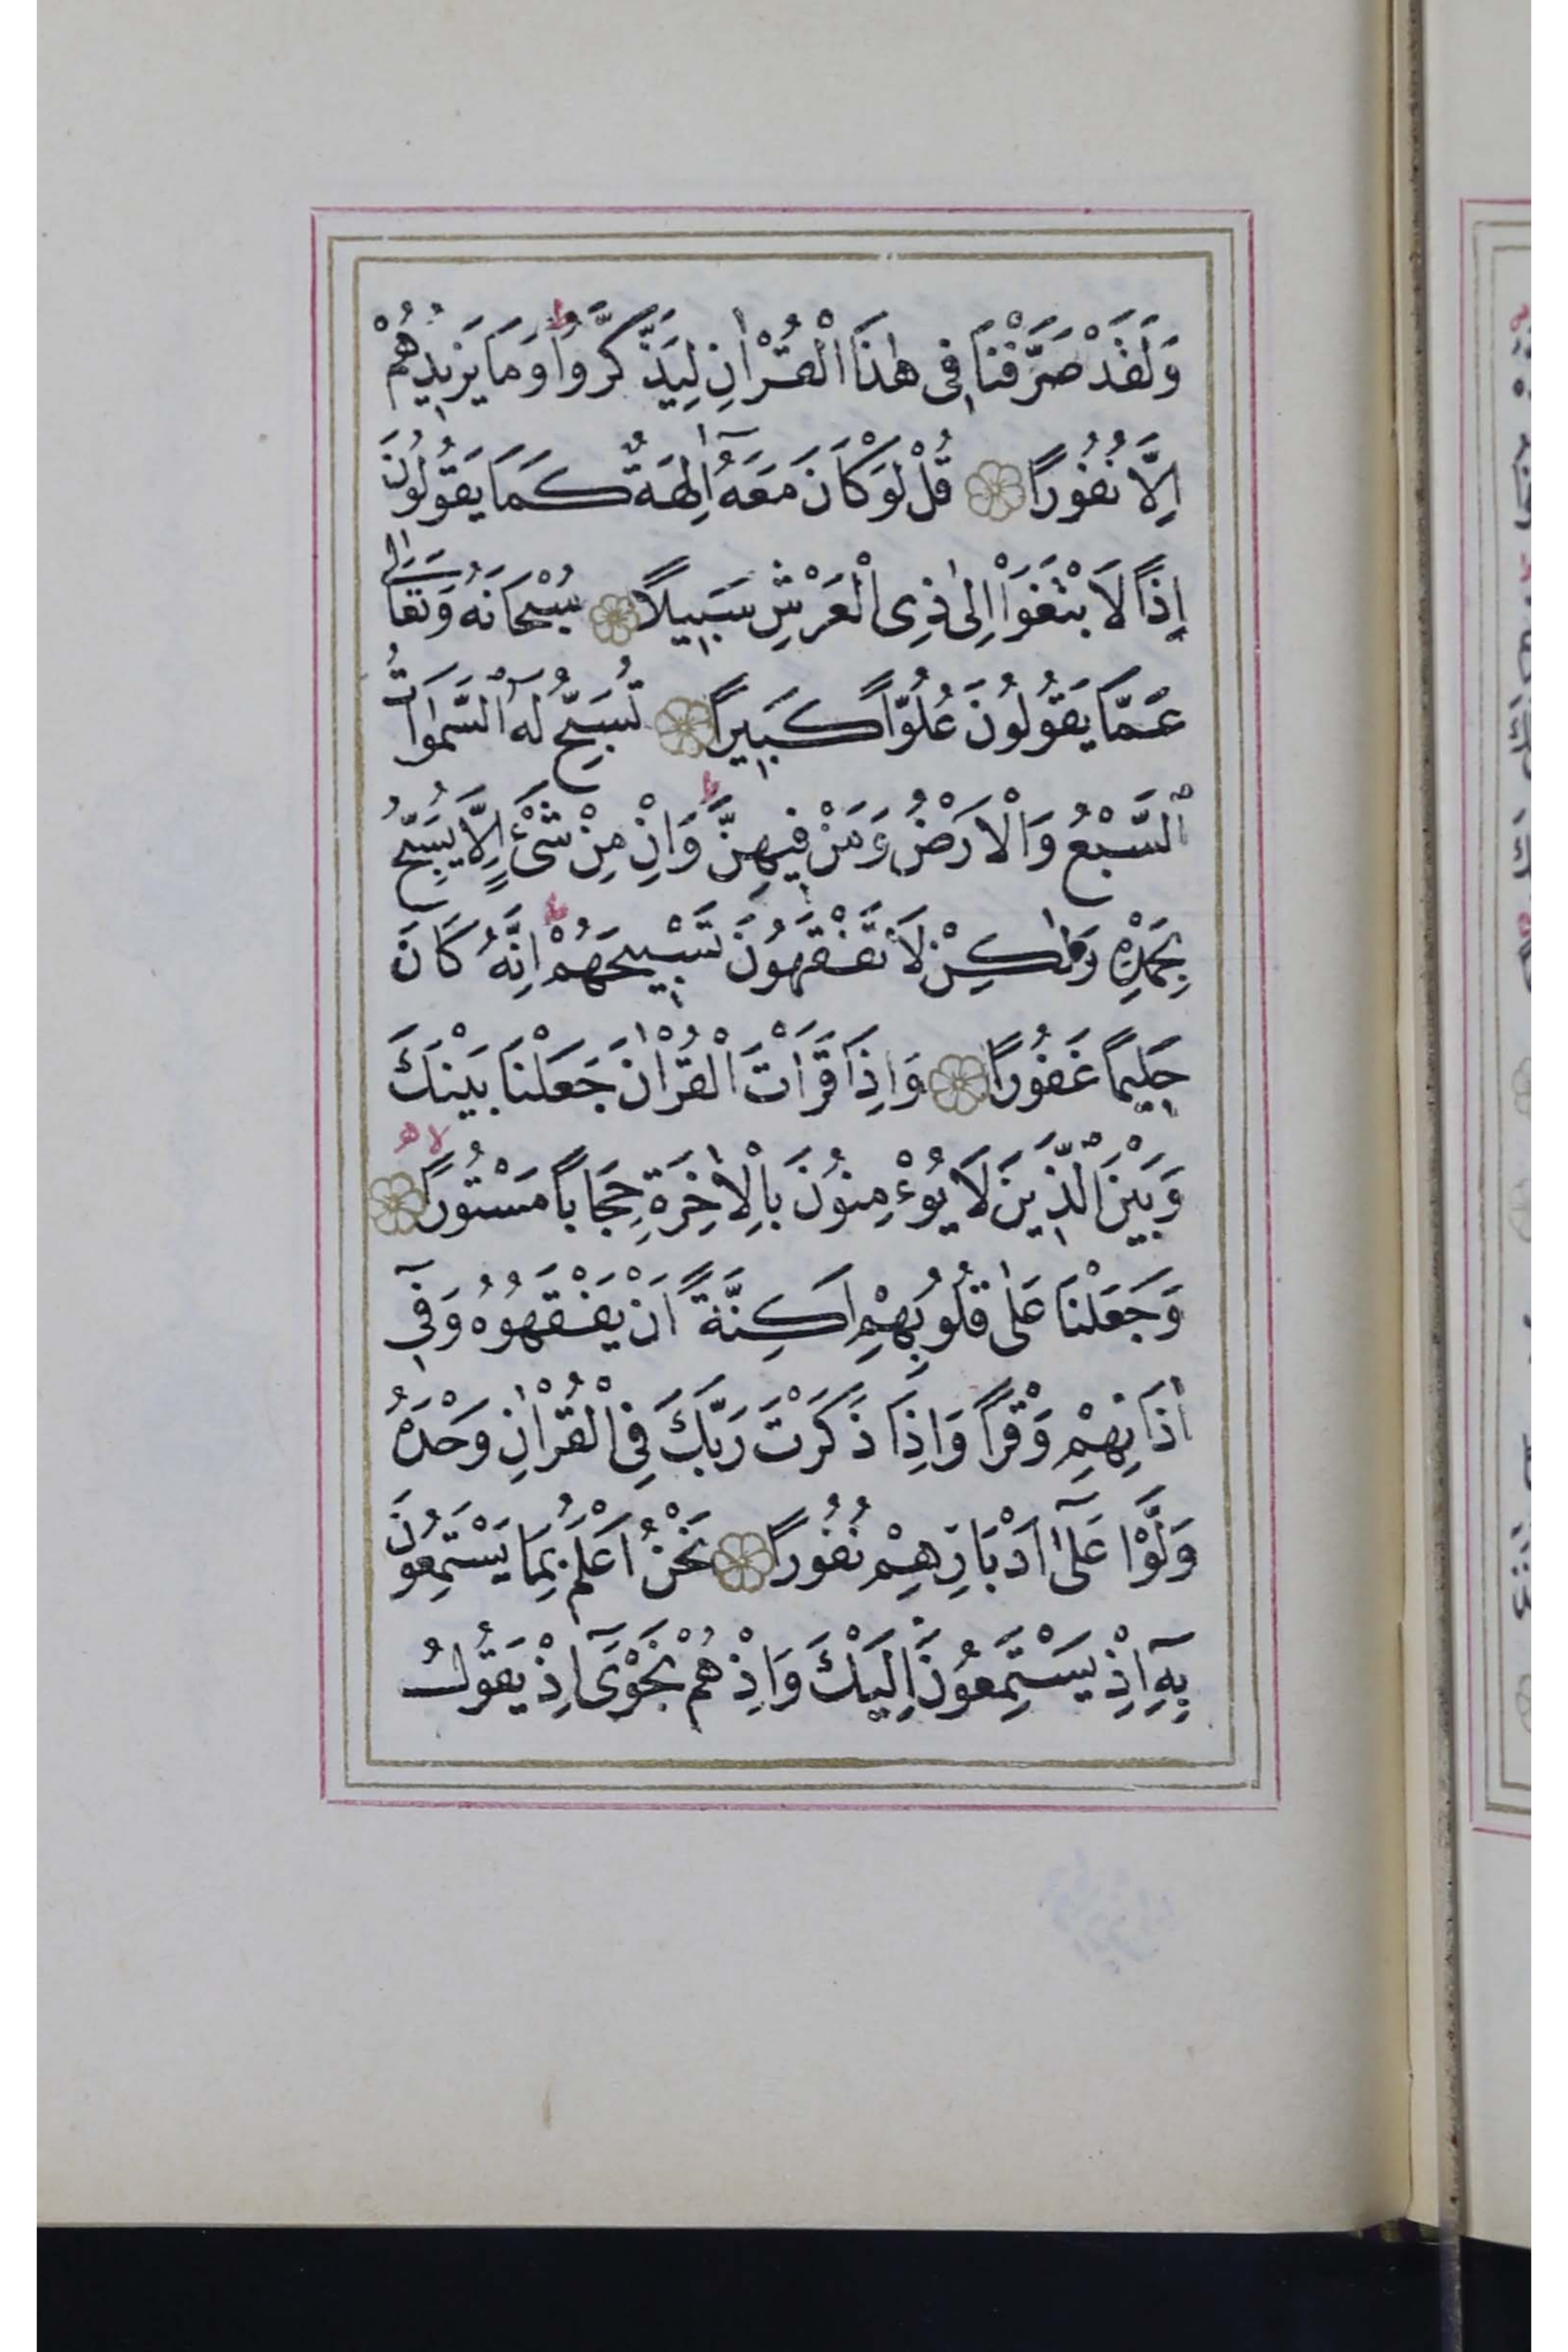 وَلَقَدْ صَرَّفْنَا فِى هٰذَا الْقُرْاٰنِ لِيَذَّكَّرُواؕ وَمَا يَزِيدُهُمْ
اِلَّا نُفُورًا قُلْ لَوْ كَانَ مَعَهُٓ اٰلِهَةٌ كَمَا يَقُولُونَ
اِذًا لَابْتَغَوْا اِلٰى ذِى الْعَرْشِ سَبِيلًا سُبْحَانَهُ وَتَعَالٰى
عَمَّا يَقُولُونَ عُلُوًّا كَبِيرًا تُسَبِّحُ لَهُ السَّمٰوَاتُ
السَّبْعُ وَالْاَرْضُ وَمَنْ فِيهِنَّؕ وَاِنْ مِنْ شَىْءٍ اِلَّا يُسَبِّحُ
بِحَمْدِهِ وَلٰكِنْ لَا تَفْقَهُونَ تَسْبِيحَهُمْؕ اِنَّهُ كَانَ
حَلِيمًا غَفُورًا وَاِذَا قَرَاْتَ الْقُرْاٰنَ جَعَلْنَا بَيْنَكَ
وَبَيْنَ الَّذِينَ لَا يُوءْمِنُونَ بِالْاٰخِرَةِ حِجَابًا مَسْتُورًا لا ه
وَجَعَلْنَا عَلٰى قُلُوبِهِمْ اَكِنَّةً اَنْ يَفْقَهُوهُ وَفِىٓ
اٰذَانِهِمْ وَقْرًا وَاِذَا ذَكَرْتَ رَبَّكَ فِى الْقُرْاٰنِ وَحْدَهُ
وَلَّوْا عَلٰٓى اَدْبَارِهِمْ نُفُورًا نَحْنُ اَعْلَمُ بِمَا يَسْتَمِعُونَ
بِهِٓ اِذْ يَسْتَمِعُونَ اِلَيْكَ وَاِذْ هُمْ نَجْوٰٓى اِذْ يَقُولُ